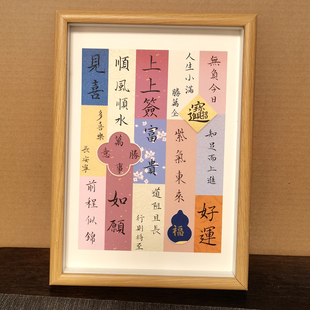 無負今日
知足而上進
好運
人生小滿
勝萬全
招財進寶
紫氣東來
福
上上簽
富貴
道阻且長
行則將至
順風順水
萬事勝意
如願
見喜
多喜樂
長安寧
前程似錦